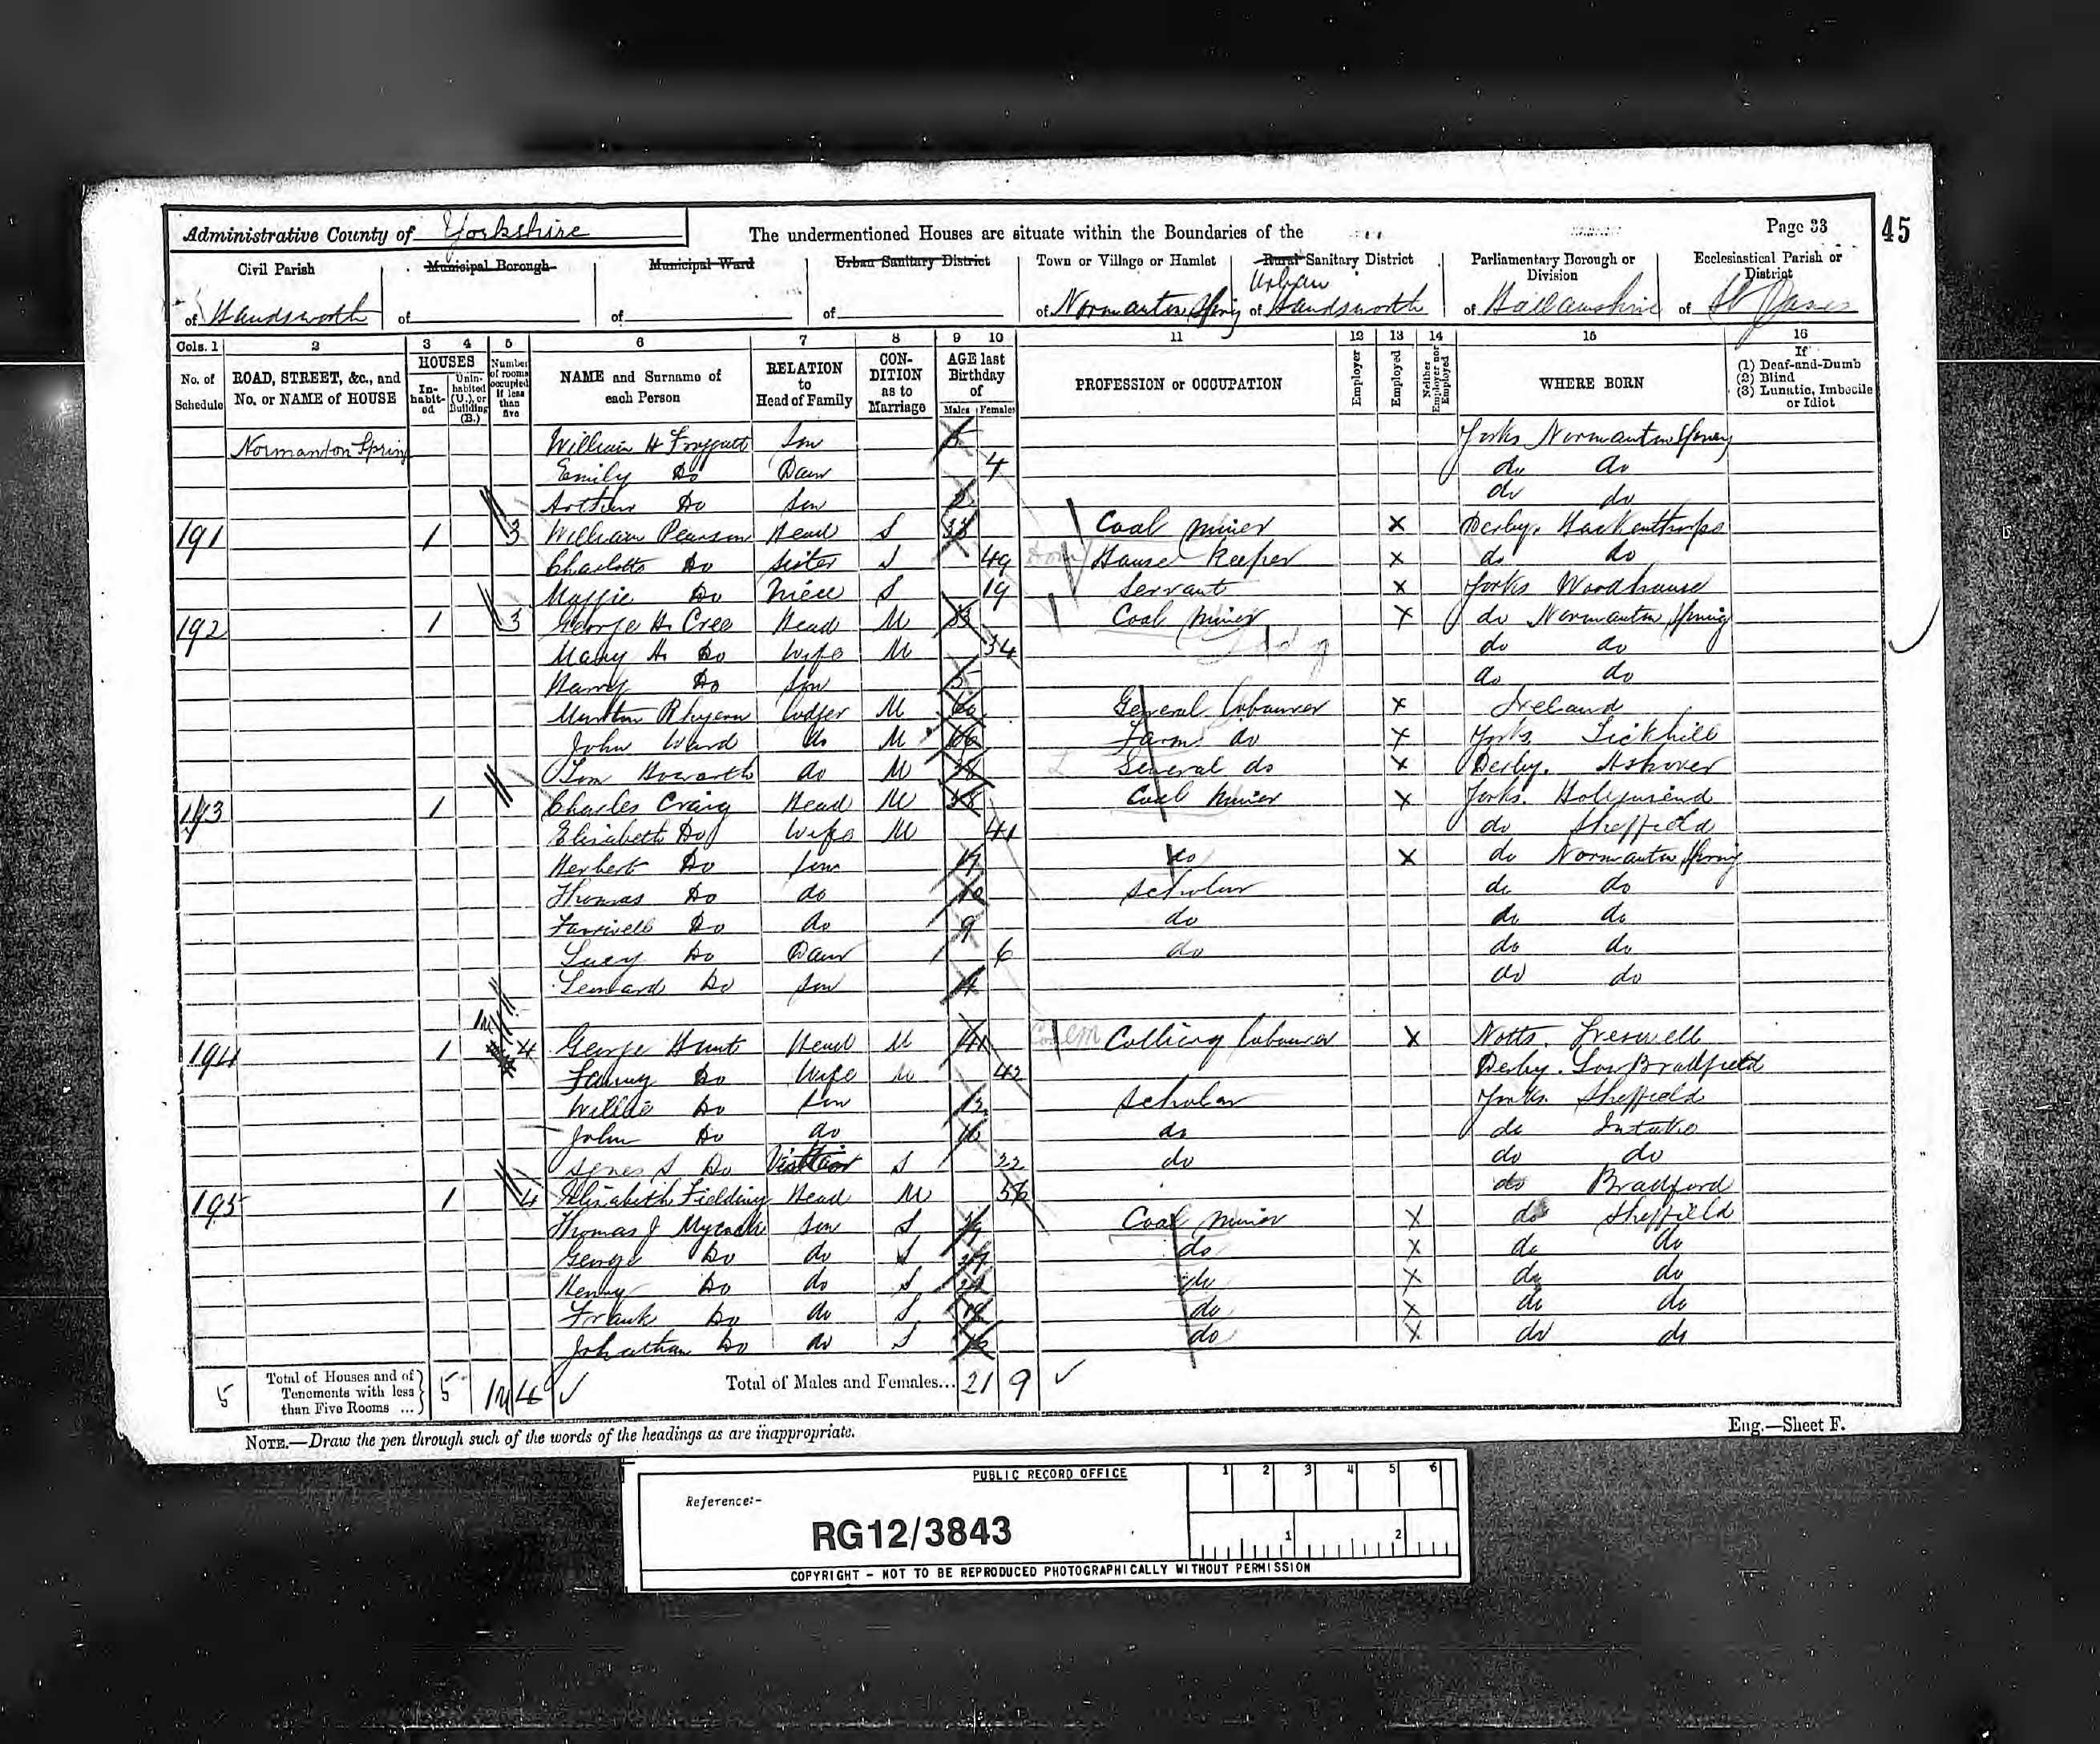 Administrative County of Yorkshire
The undermentioned Houses are situate within the Boundaries of the
Page 33
45
Civil Parish of Handsworth
Municipal Borough of
Municipal Ward of
Urban Sanitary District of
Town or Village or Hamlet of Normanton Spring
Rural Sanitary District Urban of Handsworth
Parliamentary Borough or Division of Hallamshire
Ecclesiastical Parish or District of St James
Cols. 1 2 3 4 5 6 7 8 9 10 11 12 13 14 15 16
No. of Schedule
ROAD, STREET, &c., and No. or NAME of HOUSE
HOUSES
Inhabited
Uninhabited (U.), or Building (B.)
Number of rooms occupied if less than five
NAME and Surname of each Person
RELATION to Head of Family
CONDITION as to Marriage
AGE last Birthday of
Males Females
PROFESSION or OCCUPATION
Employer
Employed
Neither Employer nor Employed
WHERE BORN
If
(1) Deaf-and-Dumb
(2) Blind
(3) Lunatic, Imbecile or Idiot
Normanton Spring William H Froggatt Son Yorks Normanton Spring
Emily Do Daur 4 do do
Arthur Do Son 2 do do
191 1 3 William Pearson Head S Coal Miner X Derby. Hackenthorpe
Charlotte Do Sister S 49 House Keeper X do do
Maggie Do Niece S 19 Servant X Yorks Woodhouse
192 1 3 George H. Cree Head M 33 Coal Miner X do Normanton Spring
Mary H. Do Wife M 34 do do
Harry Do Son do do
Lodger M 60 General Labourer X Ireland
John Ward do M 66 Farm do X Yorks. Tickhill
Tom Howarth do M General do X Derby. Ashover
193 1 Charles Craig Head M 38 Coal Miner X Yorks.
Elizabeth Do Wife M 41 do Sheffield
Herbert Do Son do X do Normanton Spring
Thomas Do do 10 Scholar do do
Do do 9 do do do
Lucy Do Daur 6 do do do
Leonard Do Son 4 do do
194 1 4 George Hunt Head M 41 Colliery Labourer X Notts. Treswell
Fanny Do Wife M 42 Derby. Low Bradfield
Willie Do Son 12 Scholar Yorks. Sheffield
John Do do 10 do do Intake
Agnes S Do Visitor S 22 do do do
195 1 4 Elizabeth Fielding Head M 56 do Bradford
Thomas J Son S Coal Miner X do Sheffield
George Do do S do X do do
Henry Do do S do X do do
Frank Do do S do X do do
Johnathan Do do S 16 do X do do
5 Total of Houses and of Tenements with less than Five Rooms ... 5 4
Total of Males and Females... 21 9
NOTE.—Draw the pen through such of the words of the headings as are inappropriate.
Eng.—Sheet F.
PUBLIC RECORD OFFICE
1 2 3 4 5 6
Reference:-
RG12/3843
1 2
COPYRIGHT - NOT TO BE REPRODUCED PHOTOGRAPHICALLY WITHOUT PERMISSION